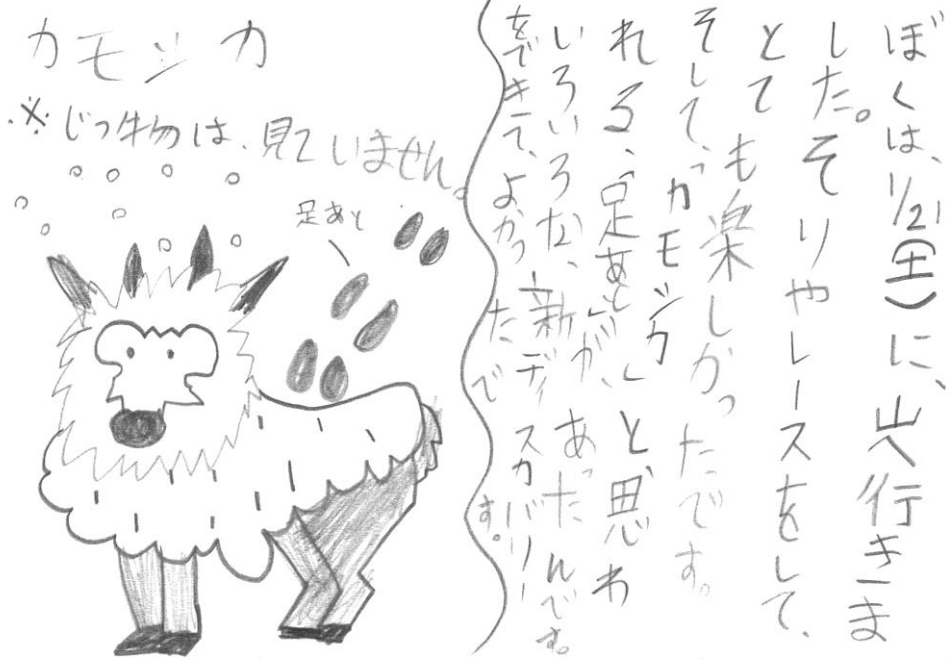 ぼくは、1/21(土)に、山へ行きま
した。そりやレースをして、
とても楽しかったです。
そして、「カモシカ」と思わ
れる、「足あと」が、あったんです。
いろいろな、新ディスカバリー
をできて、よかったです。
カモシカ
※じつ物は、見ていません。
足あと